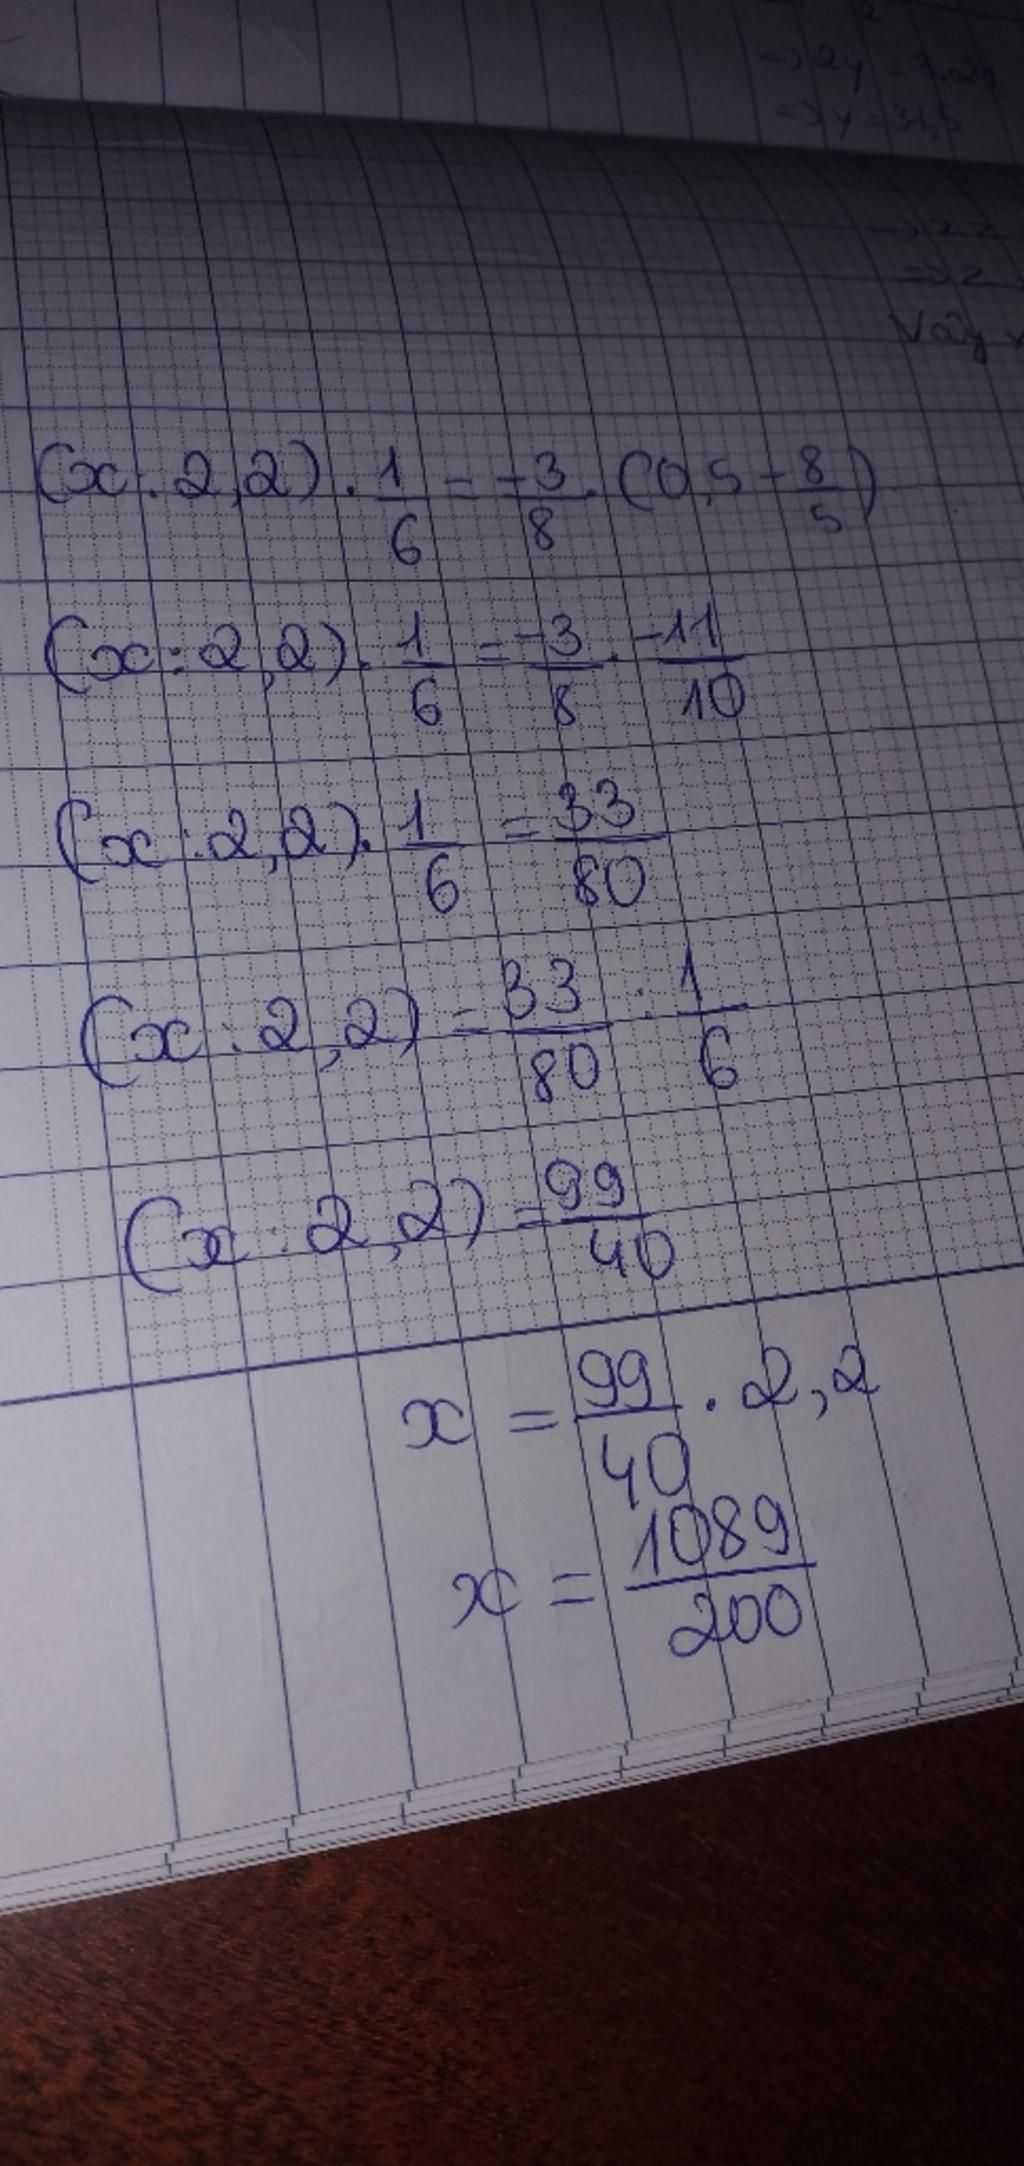 => 2y = 3.21
=> y = 31,5
Vậy
(x : 2,2) . 1/6 = -3/8 . (0,5 - 8/5)
(x : 2,2) . 1/6 = -3/8 . -11/10
(x : 2,2) . 1/6 = 33/80
(x : 2,2) = 33/80 : 1/6
(x : 2,2) = 99/40
x = 99/40 . 2,2
x = 1089/200